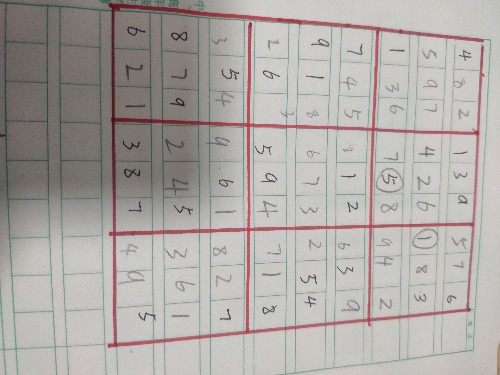 4 8 2 1 3 9 5 7 6
5 9 7 4 2 6 1 8 3
1 3 6 7 5 8 9 4 2
7 4 5 8 1 2 6 3 9
9 1 8 6 7 3 2 5 4
2 6 3 5 9 4 7 1 8
3 5 4 9 6 1 8 2 7
8 7 9 2 4 5 3 6 1
6 2 1 3 8 7 4 9 5